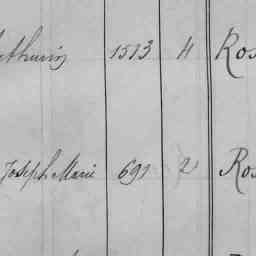 athurin 1513 4 Ros
Joseph Marie 691 2 Ros